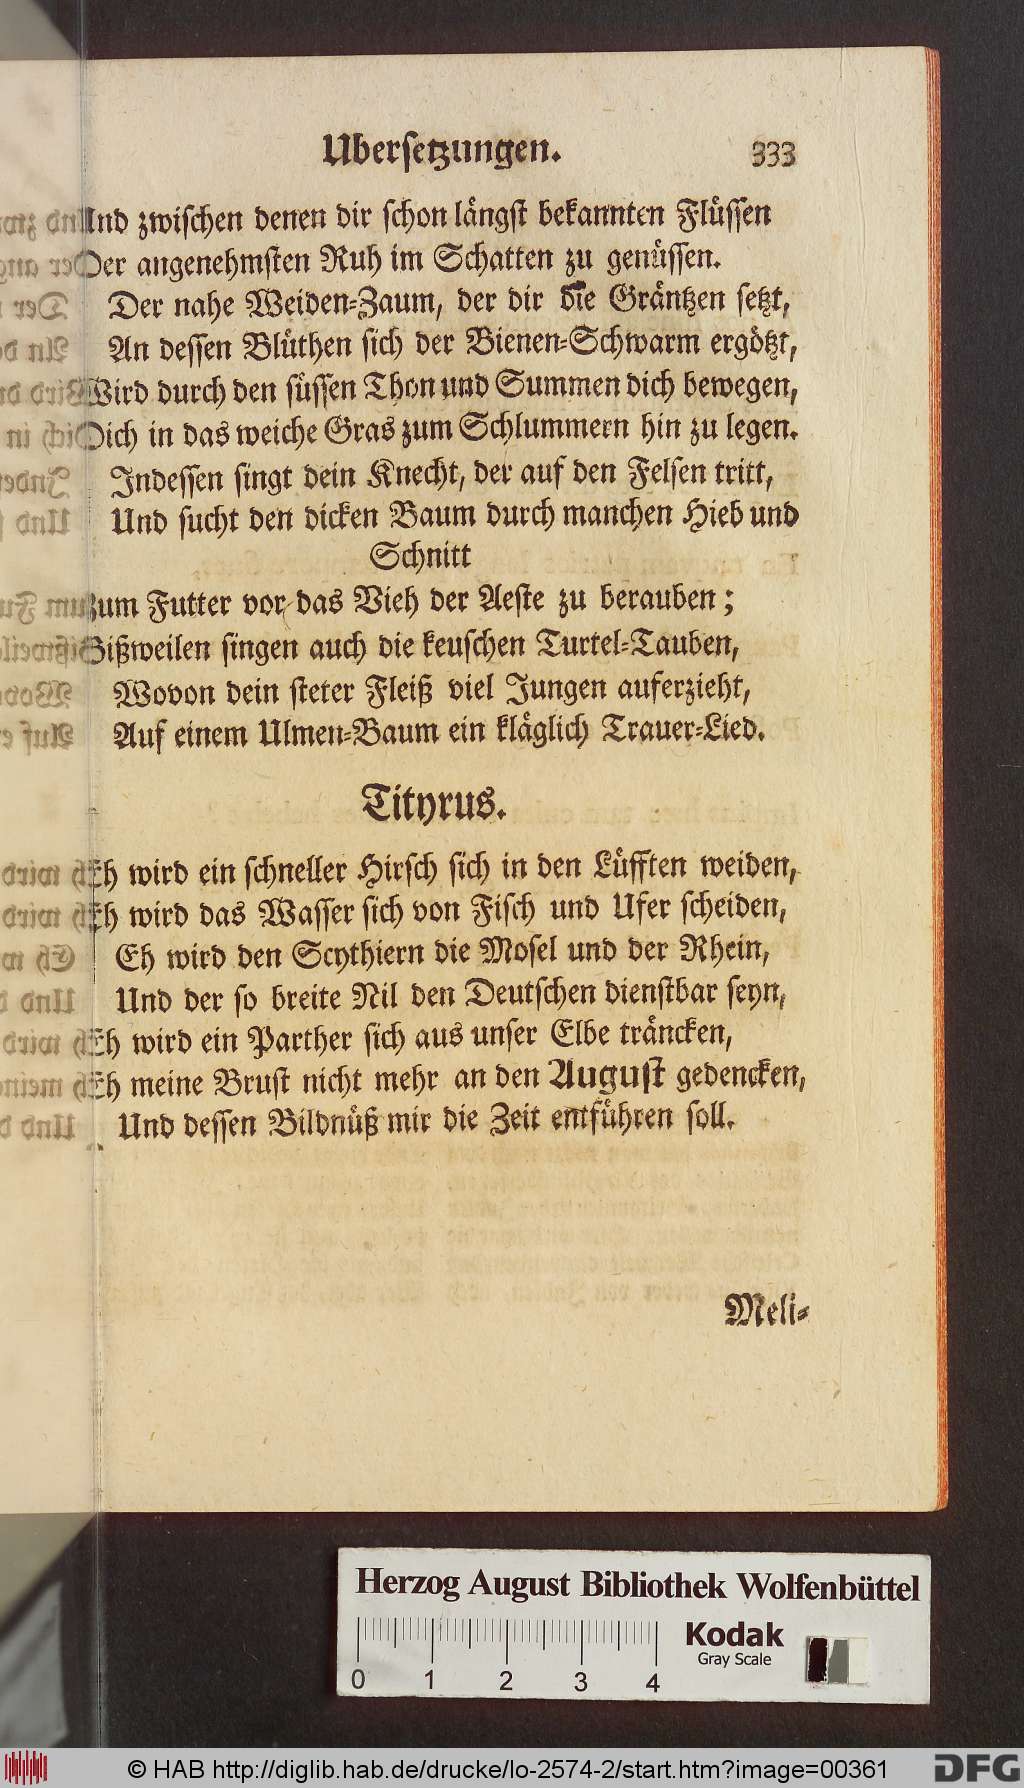 Ubersetzungen. 333
Und zwischen denen dir schon längst bekannten Flüssen
Der angenehmsten Ruh im Schatten zu genüssen.
Der nahe Weiden-Zaum, der dir die Gräntzen setzt,
An dessen Blüthen sich der Bienen-Schwarm ergötzt,
Wird durch den süssen Thon und Summen dich bewegen,
Dich in das weiche Gras zum Schlummern hin zu legen.
Indessen singt dein Knecht, der auf den Felsen tritt,
Und sucht den dicken Baum durch manchen Hieb und
Schnitt
Zum Futter vor das Vieh der Aeste zu berauben;
Bißweilen singen auch die keuschen Turtel-Tauben,
Wovon dein steter Fleiß viel Jungen auferzieht,
Auf einem Ulmen-Baum ein kläglich Trauer-Lied.
Tityrus.
Eh wird ein schneller Hirsch sich in den Lüfften weiden,
Eh wird das Wasser sich von Fisch und Ufer scheiden,
Eh wird den Scythiern die Mosel und der Rhein,
Und der so breite Nil den Deutschen dienstbar seyn,
Eh wird ein Parther sich aus unser Elbe träncken,
Eh meine Brust nicht mehr an den August gedencken,
Und dessen Bildnüß mir die Zeit entführen soll.
Meli-
Herzog August Bibliothek Wolfenbüttel
Kodak
Gray Scale
0 1 2 3 4
© HAB http://diglib.hab.de/drucke/lo-2574-2/start.htm?image=00361
DFG